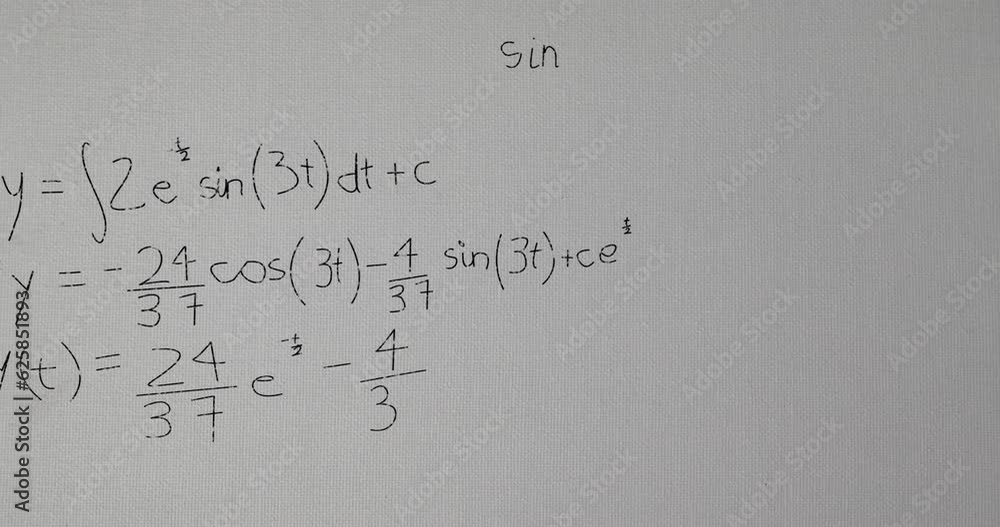 sin
y = ∫2e^{-t/2} sin(3t)dt + c
y = -24/37 cos(3t) - 4/37 sin(3t) + ce^{t/2}
y(t) = 24/37 e^{-t/2} - 4/3
Adobe Stock | #625851893